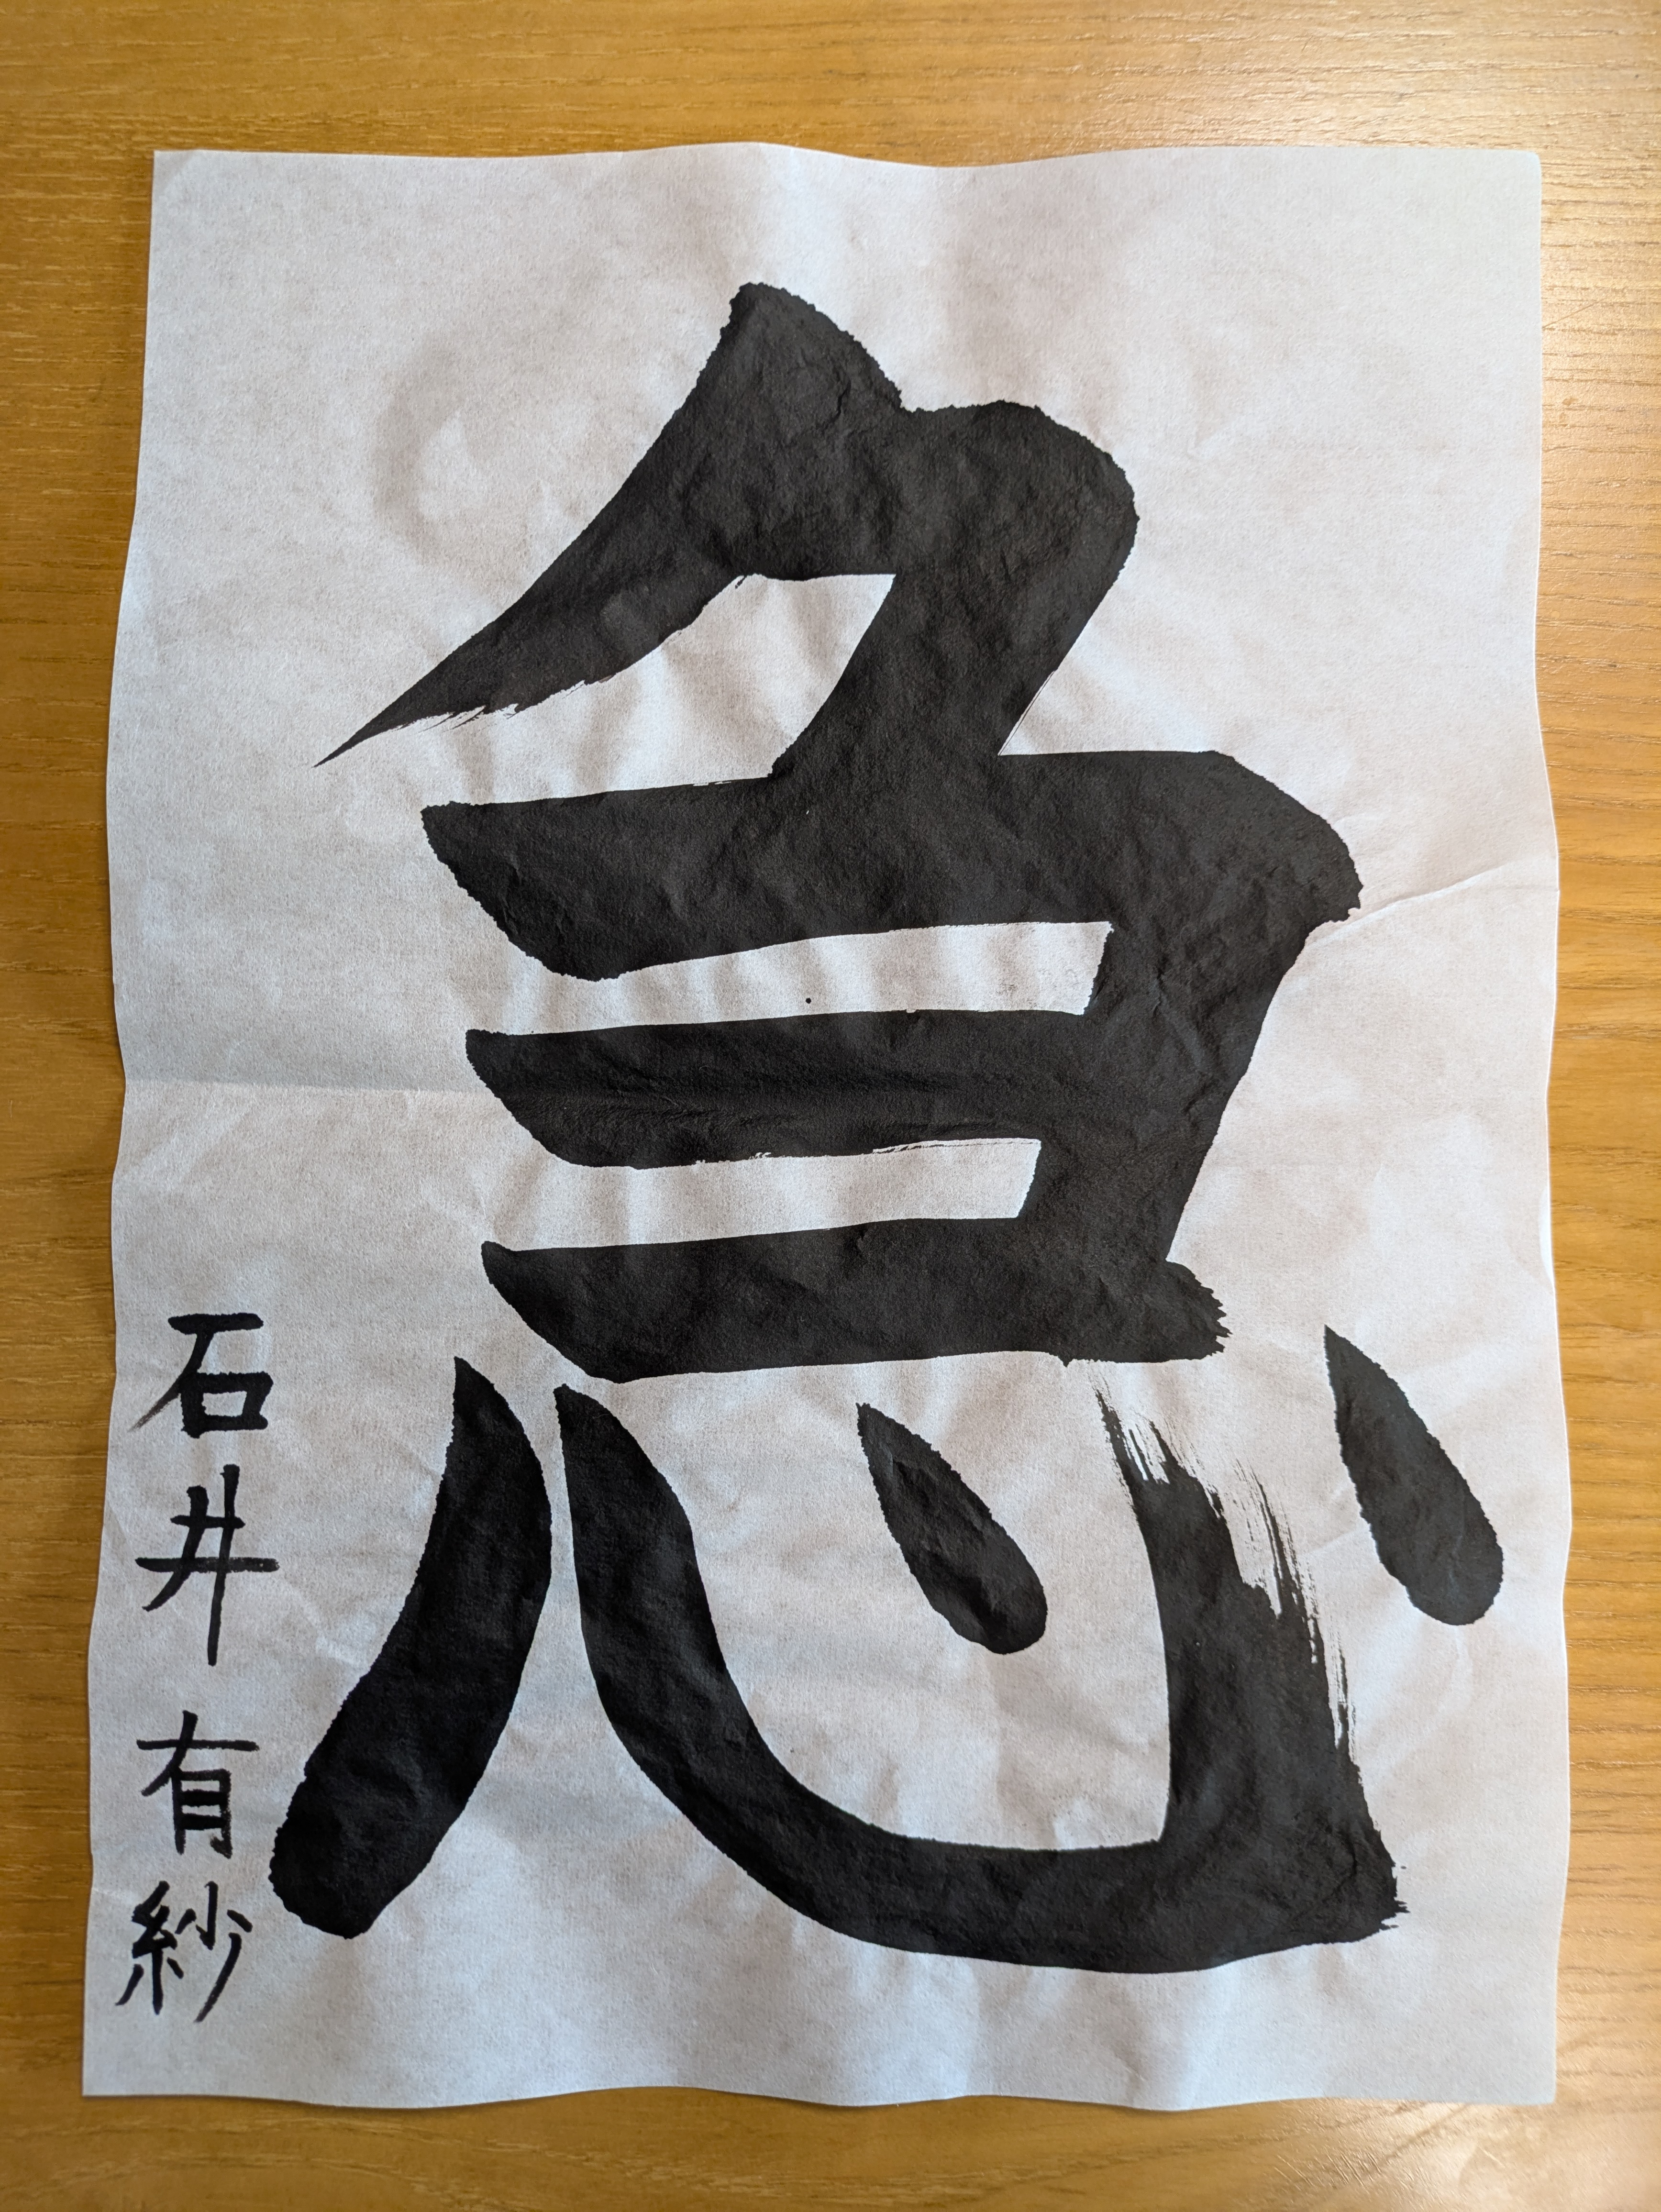 急
石井有紗